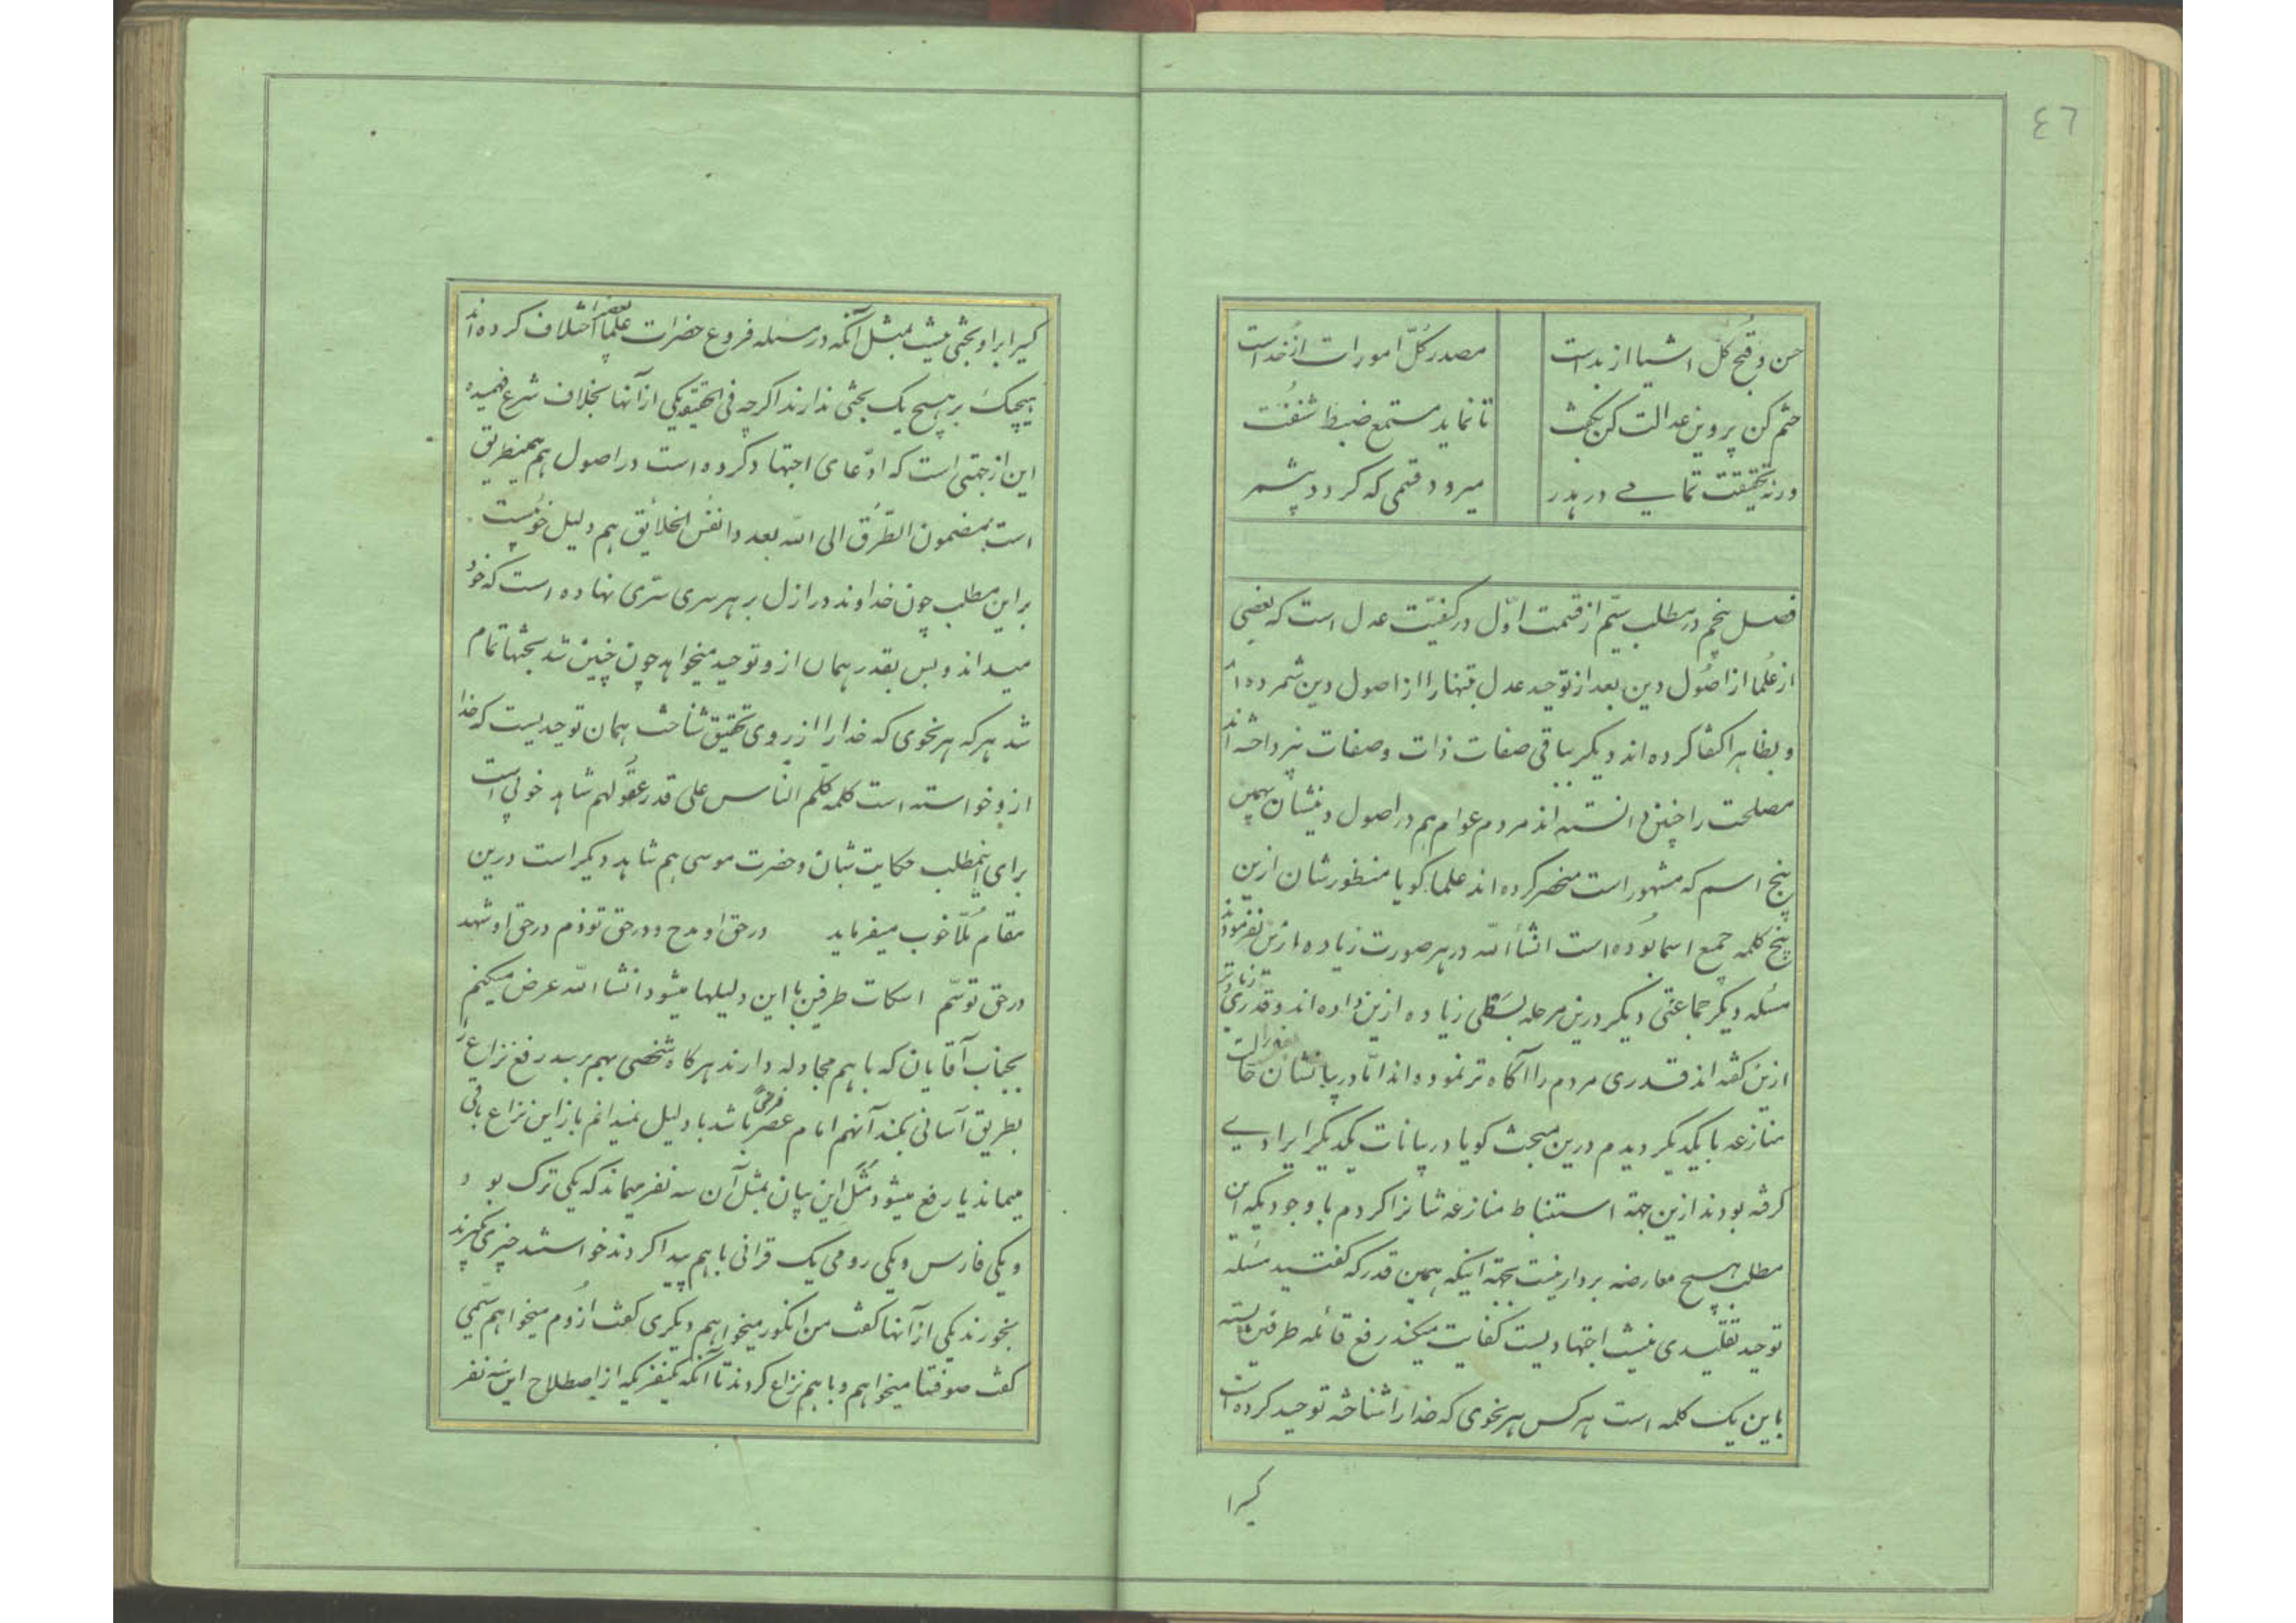 ٤٦
حسن و قبح کل اشیا از بداست مصدر کلّ امورات از خداست
ختم کن پروین عدالت کن بحث تا نماید مستمع ضبط شنفت
ورنه تحقیقت تمامی در هدر میرود قتمی که کردد پشمر
فصل پنجم در مطلب سیّم از قسمت اوّل در کیفیّت عدل است که بعضی
از علما از اصُول دین بعد از توحید عدل تنها را از اصول دین شمرده اند
و بظاهر اکتفا کرده اند دیکر بباقی صفات ذات و صفات نپرداخته اند
مصلحت را چنین دانسته اند مردم عوام هم در اصول دینشان بهمین
پنج اسم که مشهور است منحصر کرده اند علما کویا منظورشان ازین
پنج کلمه جمع اسما بوُده است انشأ الله در هر صورت زیاده ازین نفرموده اند
مسُله دیکر جماعتی دیکر درین مرحله بسَطی زیاده ازین داده اند و قدری زیادتر
ازین کفته اند قدری مردم را آکاه تر نموده اند امّا در بیانشان حالت
منازعه با یکدیکر دیدم درین مبحث کویا در بیانات یکدیکر ایرادی
کرفته بودند ازین جهة استنباط منازعه شانرا کردم با وجودیکه این
مطلب هیچ معارضه بردار نیست بجهة اینکه همین قدر که کفتید مسُله
توحید تقلیدی نیست اجتهادیست کفایت میکند رفع قائله طرفین بسته
باین یک کلمه است هر کس هر نحوی که خدا را شناخته توحید کرده است
کسیرا
کسیرا براو بحثی نیست بمثل آنکه در مسُله فروع حضرات علما بعضی اختلاف کرده اند
هیچیک بر هیچ یک بحثی ندارند اکرچه فی الحقیقه یکی از آنها بخلاف شرع فهمیده
این از جهتی است که ادّعای اجتهاد کرده است در اصول هم همینطریق
است بمضمون الطّرُق الی الله بعدد انفُس الخلایُق هم دلیل خوبیست
بر این مطلب چون خداوند در ازل بر هر سری سرّی نهاده است که خود
میداند و بس بقدر همان ازو توحید میخواهد چون چنین شد بحثها تمام
شد هر که هر نحوی که خدا را از روی تحقیق شناخت همان توحیدیست که خدا
ازو خواسته است کلمه کلم النّاس علی قدر عقُولهم شاهد خوبی است
برای اینمطلب حکایت شبان و حضرت موسی هم شاهد دیکر است درین
مقام مُلّا خوب میفرماید در حق او مدح و در حق تو ذم در حق او شهد
در حق تو سّم اسکات طرفین با این دلیلها میشود انشا الله عرض میکنم
بجناب آقایان که با هم مجادله دارند هر کاه شخصی بهم برسد رفع نزاع را
بطریق آسانی بکند آنهم امام عصر فرضی باشد با دلیل نمیدانم باز این نزاع باقی
میماند یا رفع میشود مَثَل این بیان بمثل آن سه نفر میماند که یکی ترک بود
و یکی فارس و یکی رومی یک قرانی با هم پیدا کردند خواستند چیزی بکیرند
بخورند یکی از آنها کفت من انکور میخواهم دیکری کفت ازُوم میخواهم سیّمی
کفت صوفتا میخواهم و با هم نزاع کردند تا آنکه یکنفریکه از اصطلاح این سه نفر